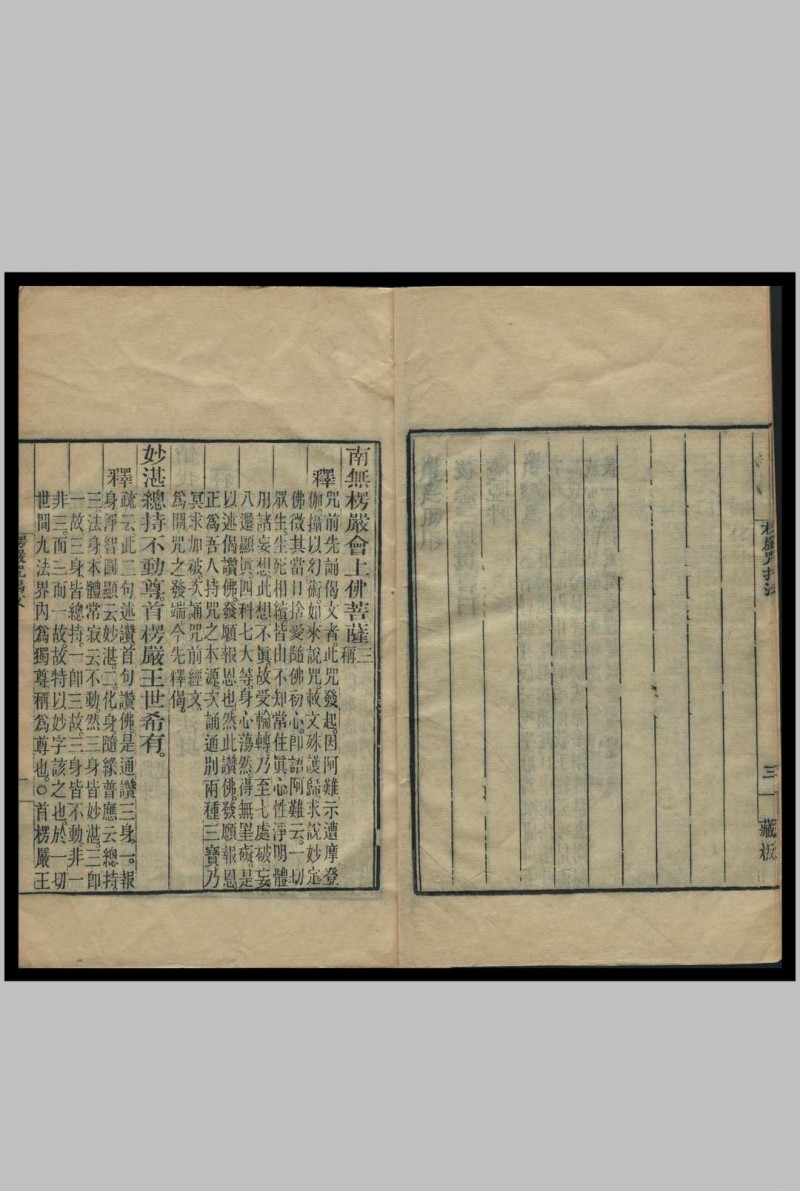 三
藏板
南無楞嚴會上佛菩薩三稱
釋咒前先誦偈文者此咒發起因阿難示遭摩登
伽攝以幻術如來說咒敕文殊護歸求說妙定
佛徵其當日捨愛隨佛初心卽語阿難云一切
眾生生死相續皆由不知常住眞心性淨明體
用諸妄想此想不眞故受輪轉乃至七處破妄
八還顯眞四科七大等身心蕩然得無罣礙是
以述偈讚佛發願報恩也然此讚佛發願報恩
正爲吾人持咒之本源次誦通別兩種三寶乃
冥求加破次誦咒前經文
爲開咒之發端今先釋偈
妙湛總持不動尊首楞嚴王世希有
釋疏云此二句述讚首句讚佛是通讚三身一報
身淨智圓顯云妙湛二化身隨緣普應云總持
三法身本體常寂云不動然三身皆妙湛三卽
一故三身皆總持一卽三故三身皆不動非一
非三而三而一故故特以妙字該之也於一切
世間九法界內爲獨尊稱爲尊也○首楞嚴王